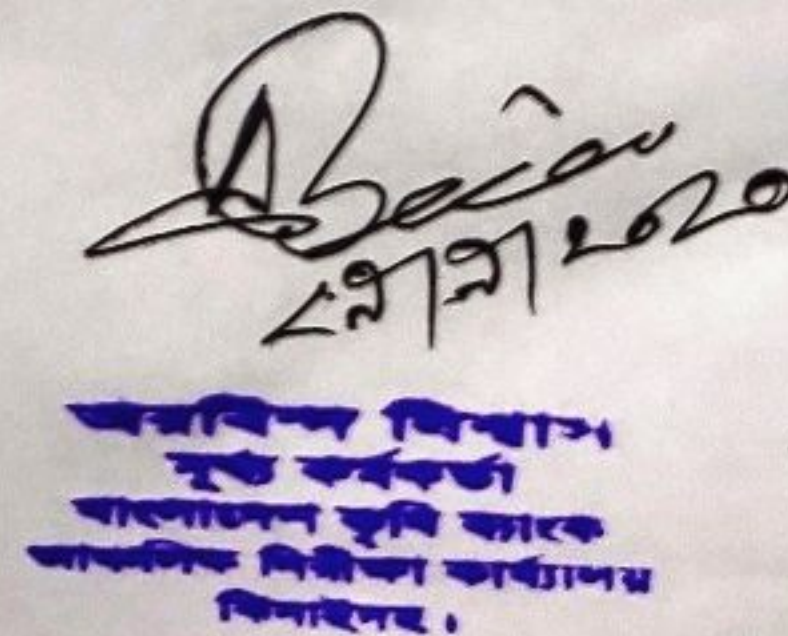 অরবিন্দ বিশ্বাস
মুখ্য কর্মকর্তা
বাংলাদেশ কৃষি ব্যাংক
আঞ্চলিক নিরীক্ষা কার্য্যালয়
ঝিনাইদহ।